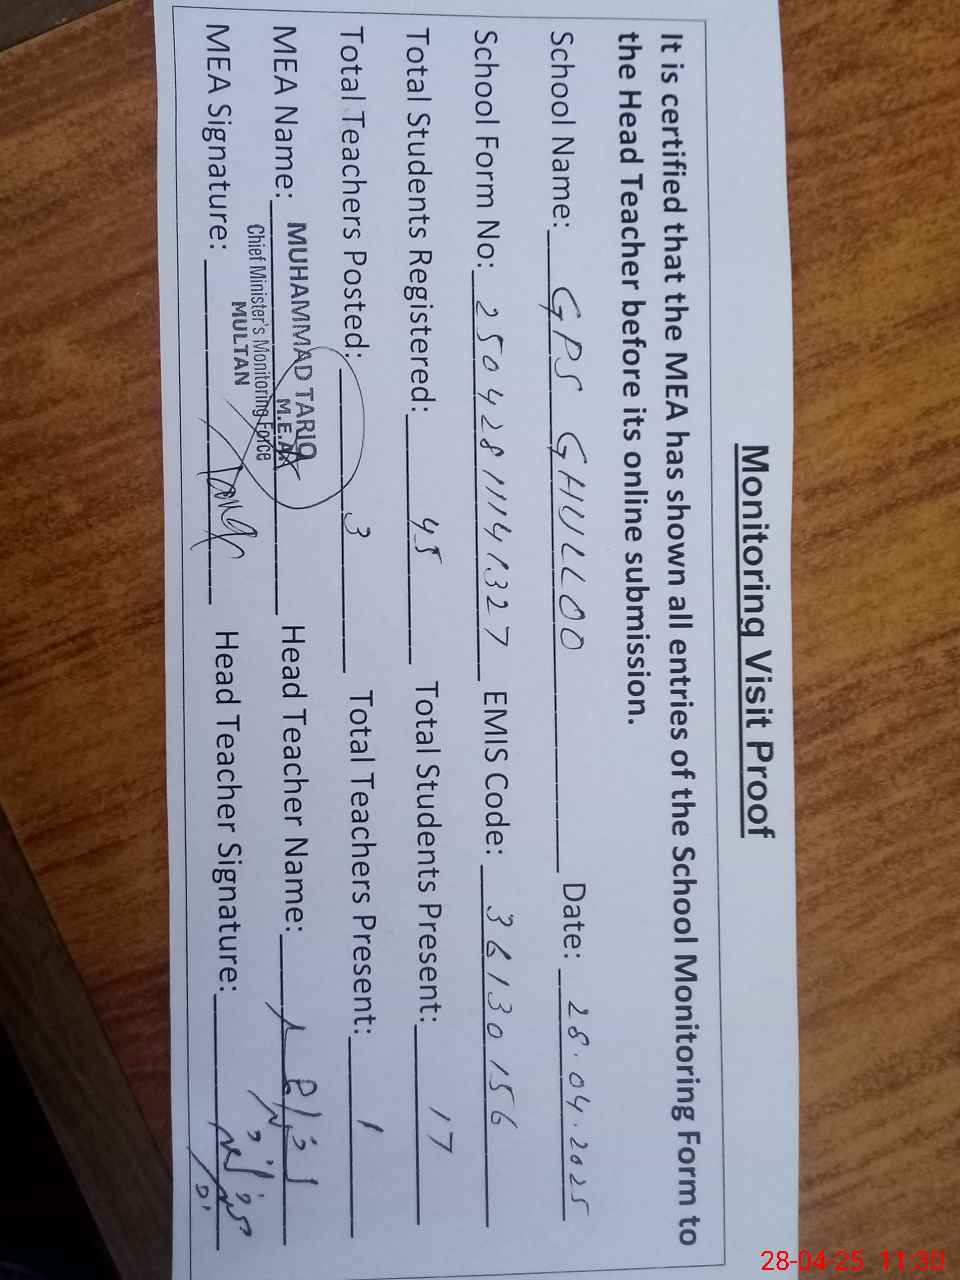 Monitoring Visit Proof
It is certified that the MEA has shown all entries of the School Monitoring Form to
the Head Teacher before its online submission.
School Name: GPS GHULLOO Date: 28.04.2025
School Form No: 25042811141327 EMIS Code: 36130156
Total Students Registered: 45 Total Students Present: 17
Total Teachers Posted: 3 Total Teachers Present: 1
MEA Name: MUHAMMAD TARIQ Head Teacher Name:
M.E.A
Chief Minister's Monitoring Force
MULTAN
MEA Signature: Tariq Head Teacher Signature:
28-04-25 11:30